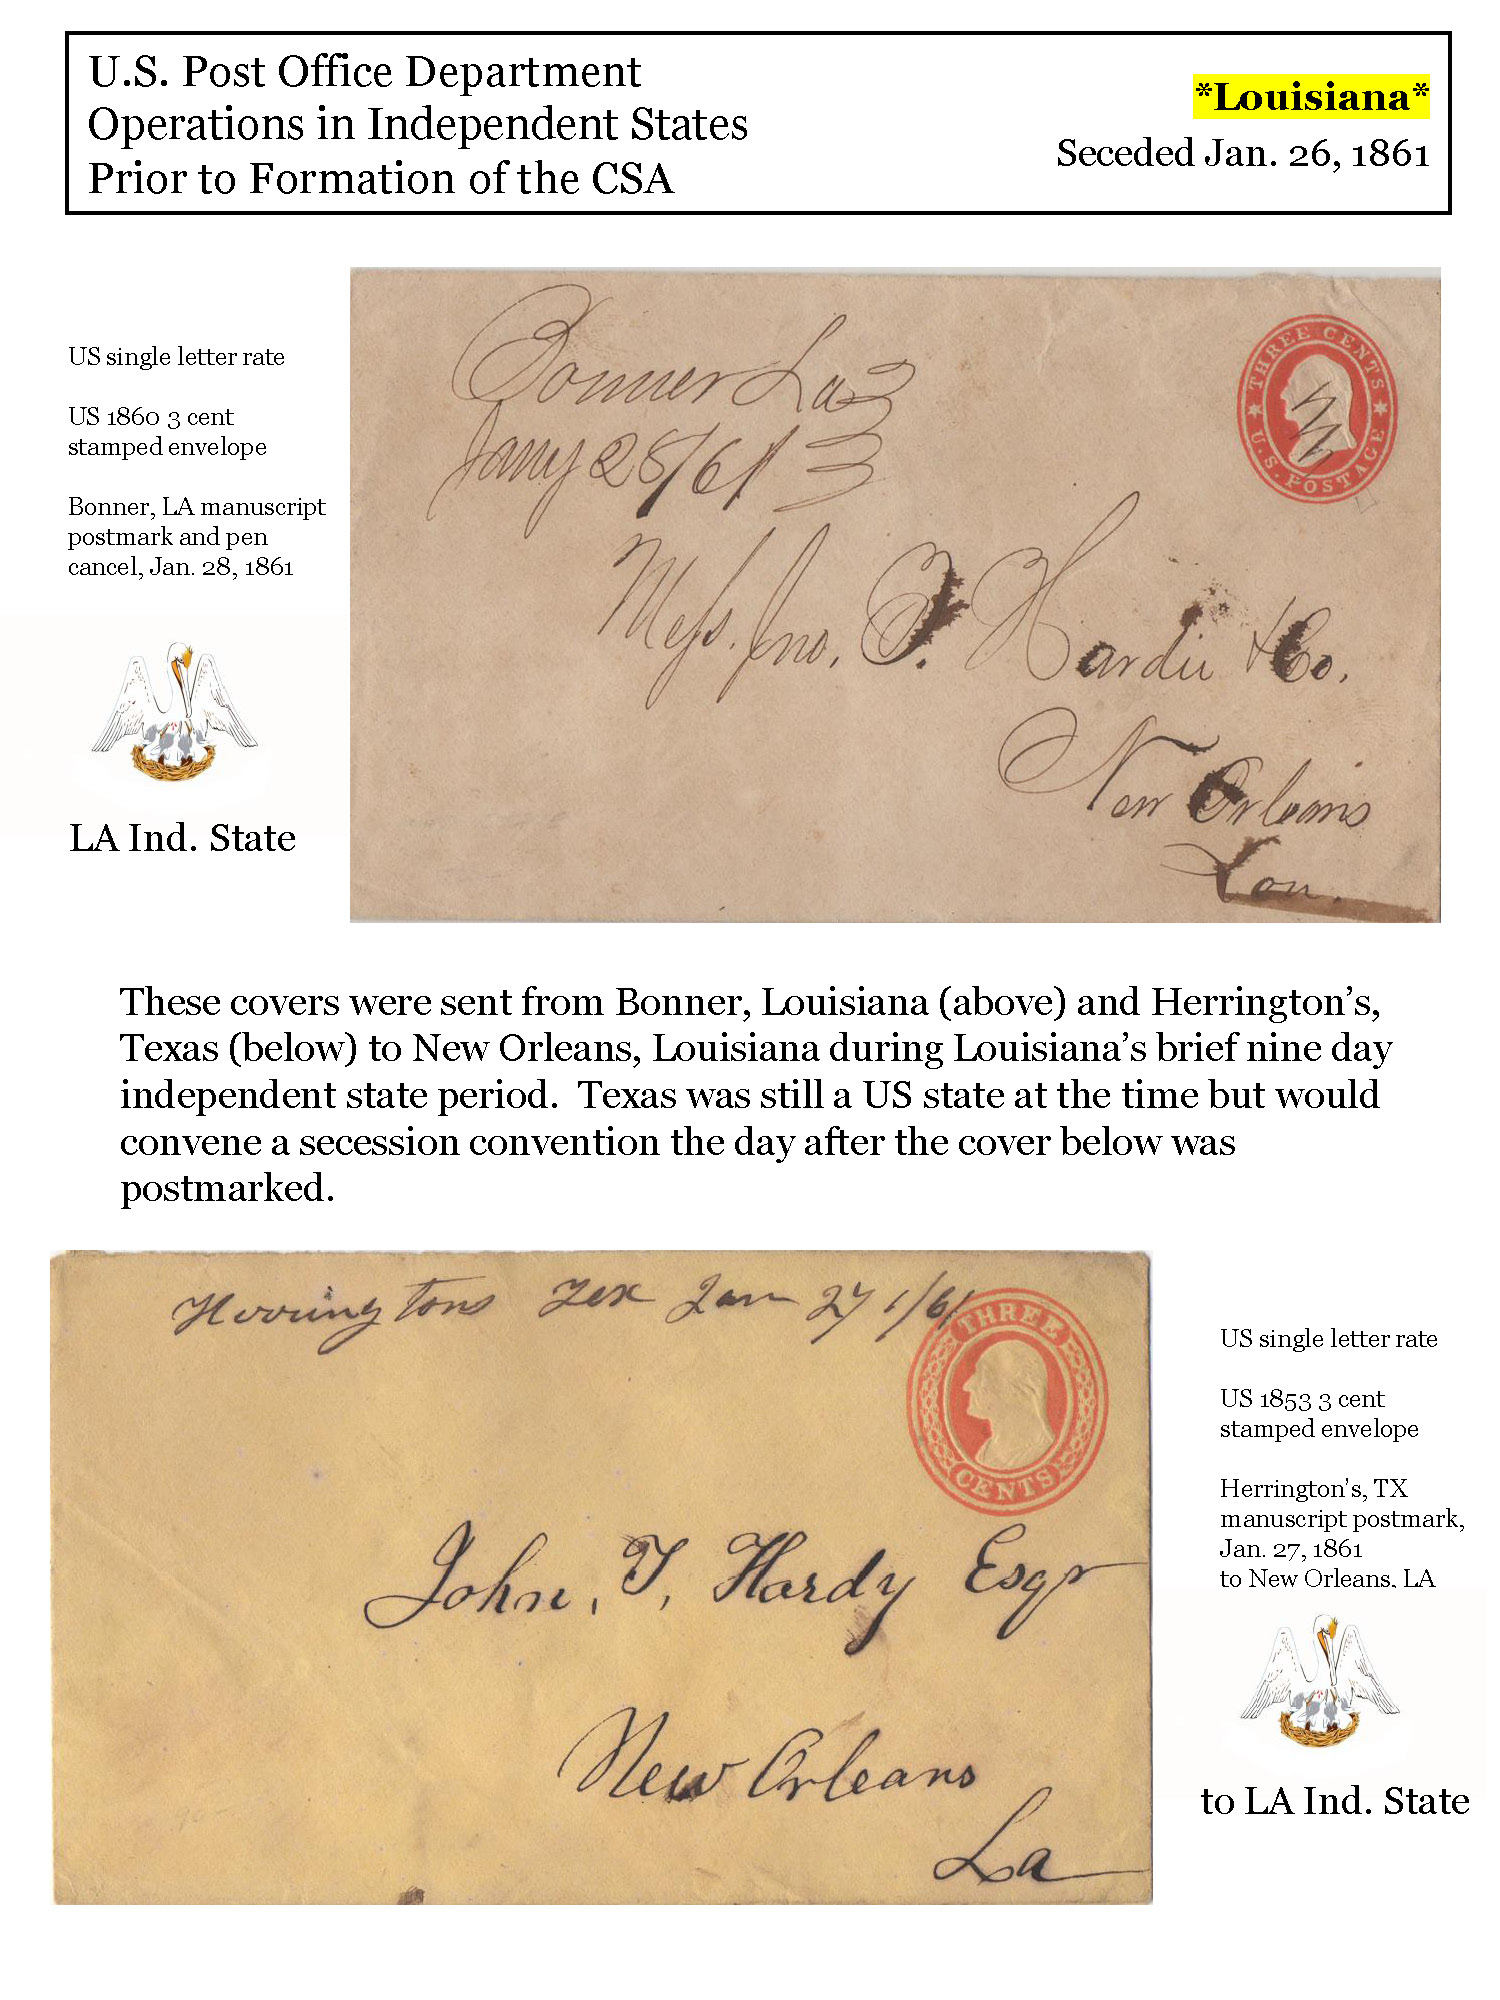 U.S. Post Office Department
Operations in Independent States
Prior to Formation of the CSA
*Louisiana*
Seceded Jan. 26, 1861
US single letter rate
US 1860 3 cent
stamped envelope
Bonner, LA manuscript
postmark and pen
cancel, Jan. 28, 1861
LA Ind. State
Bonner La
Jany 28/61
3
3
THREE CENTS
U.S. POSTAGE
Mess. Jno. T. Hardie & Co.
New Orleans
Lou.
These covers were sent from Bonner, Louisiana (above) and Herrington's,
Texas (below) to New Orleans, Louisiana during Louisiana's brief nine day
independent state period. Texas was still a US state at the time but would
convene a secession convention the day after the cover below was
postmarked.
Herringtons Tex Jan 27 1/61
THREE
CENTS
John, T, Hardy Esqr
New Orleans
La
US single letter rate
US 1853 3 cent
stamped envelope
Herrington's, TX
manuscript postmark,
Jan. 27, 1861
to New Orleans, LA
to LA Ind. State